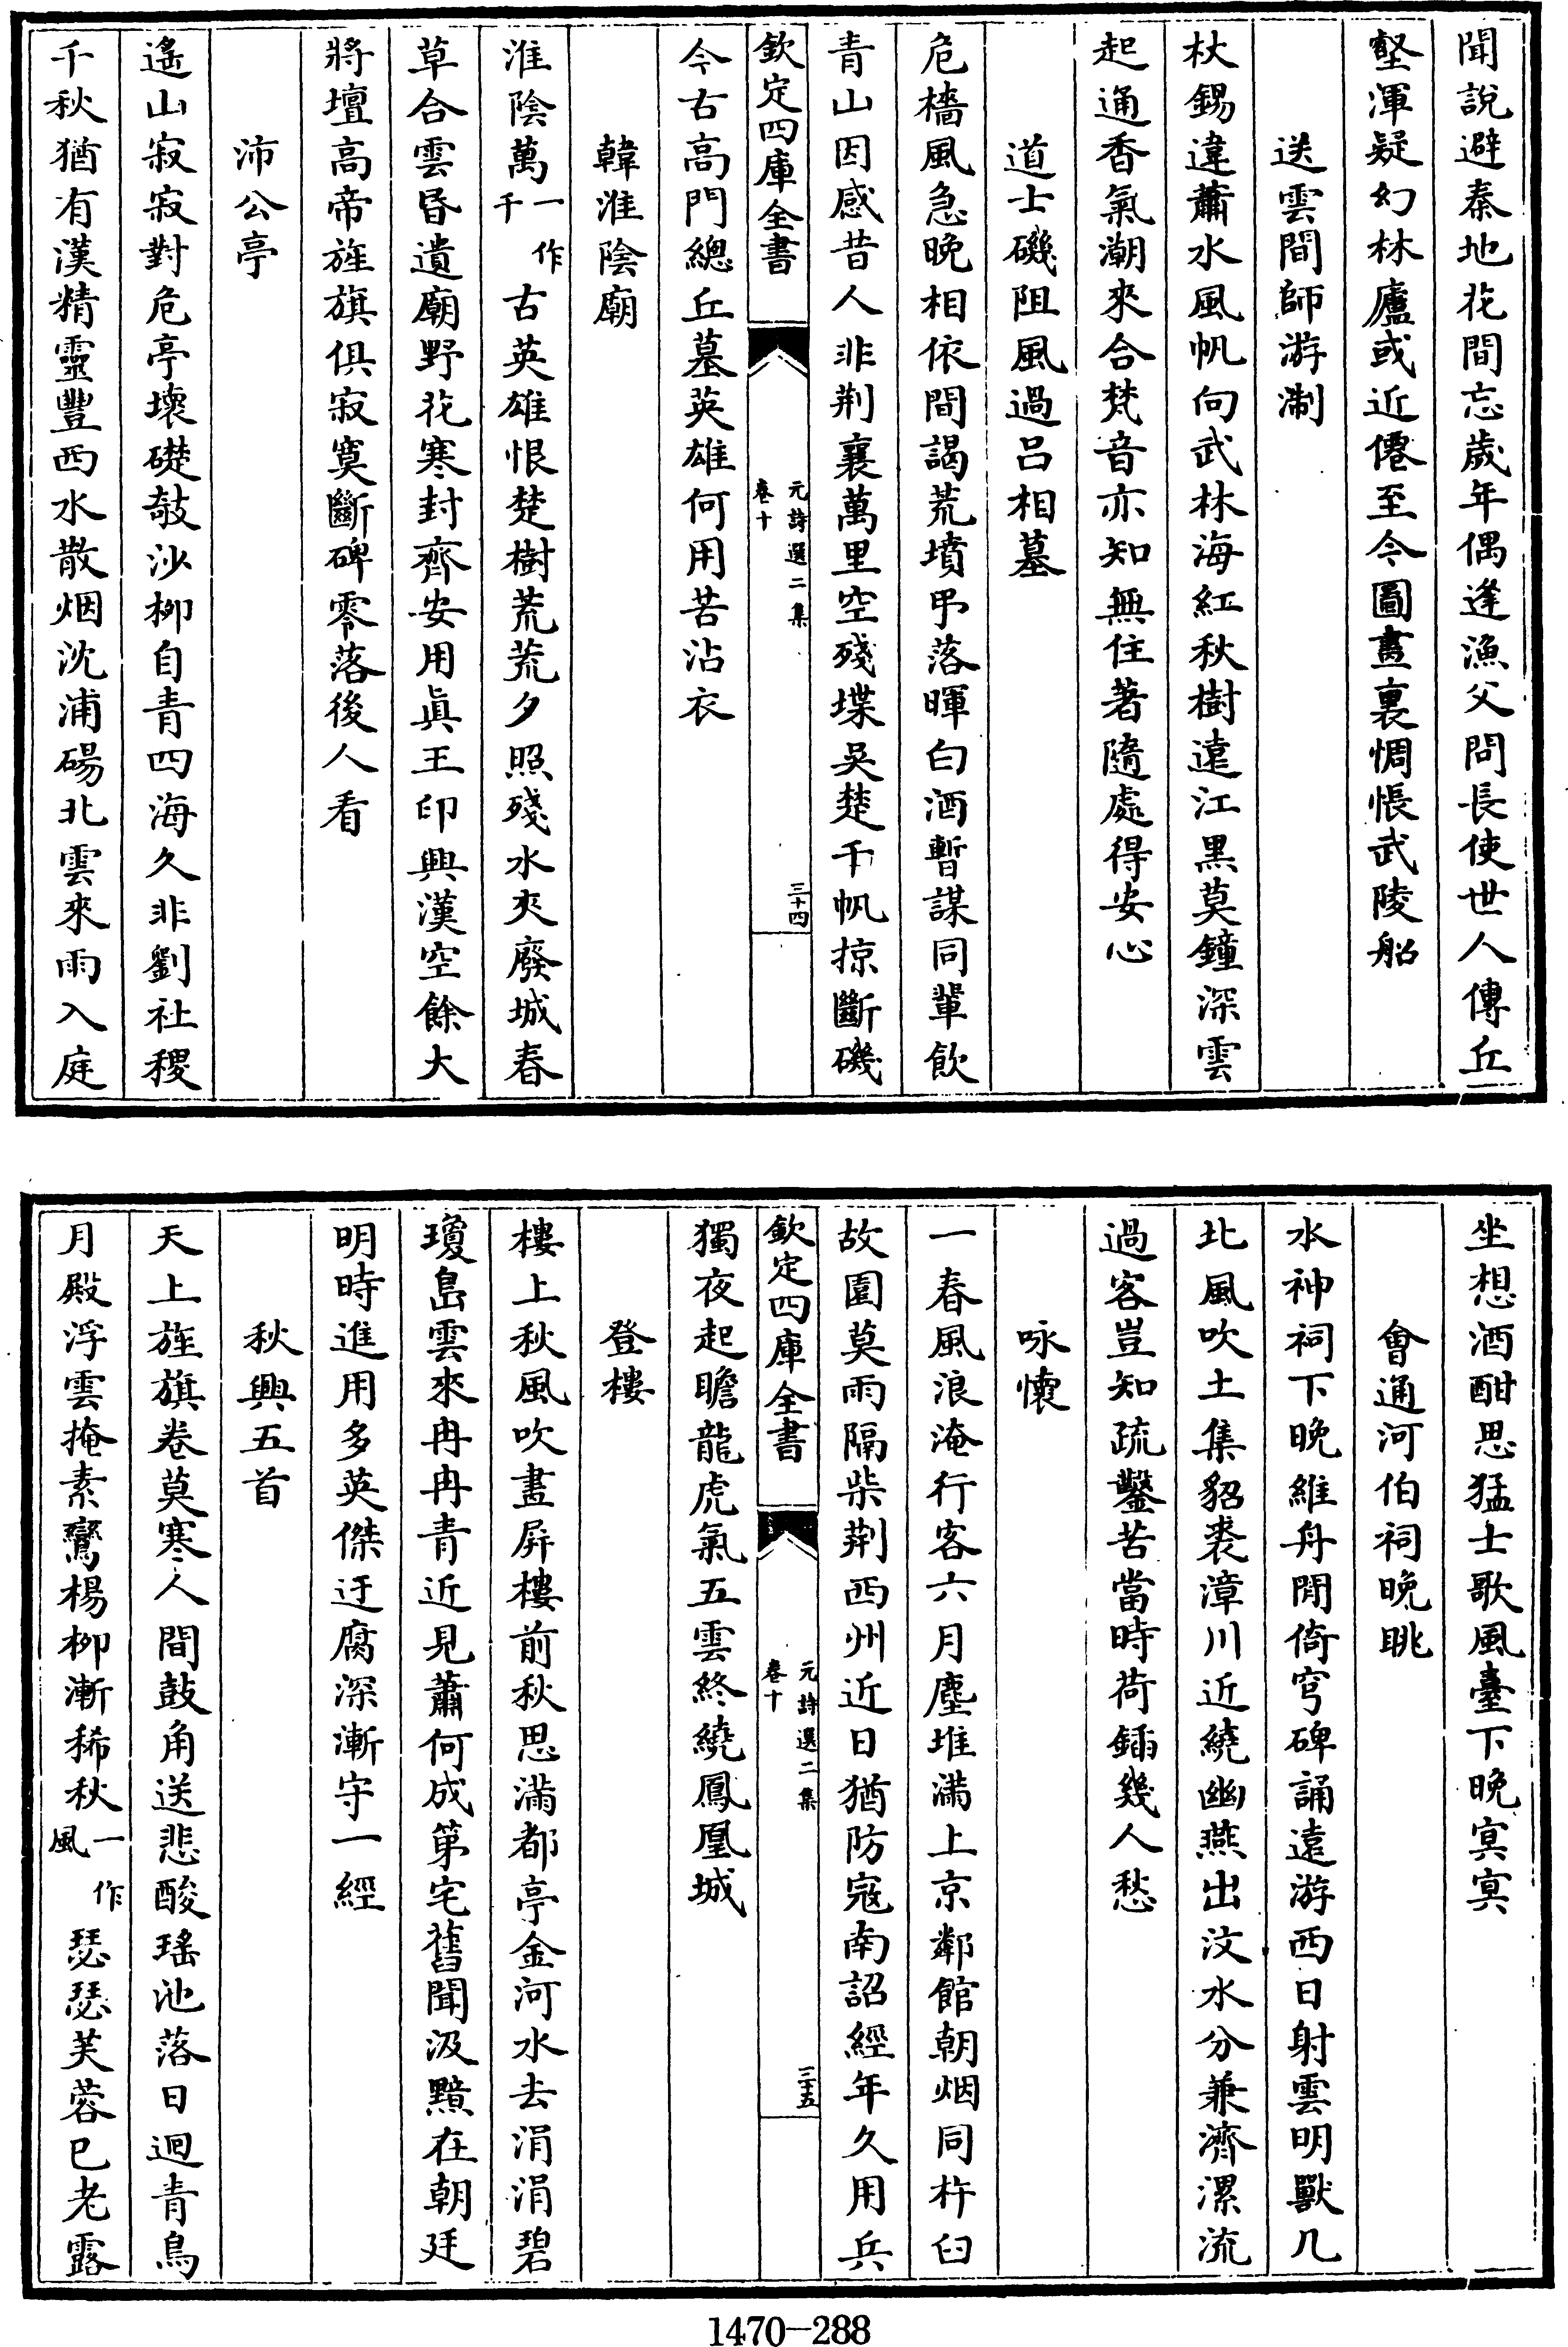 聞說避秦地花間忘歲年偶逢漁父問長使世人傳丘
壑渾疑幻林廬或近僊至今圖畫裏惆悵武陵船
送雲間師游淛
杖錫違蕭水風帆向武林海紅秋樹遠江黒莫鐘深雲
起通香氣潮來合梵音亦知無住著隨處得安心
道士磯阻風過呂相墓
危檣風急晚相依間謁荒墳弔落暉白酒暫謀同輩飲
青山因感昔人非荆襄萬里空殘堞吳楚千帆掠斷磯
欽定四庫全書
元詩選二集
卷十
三十四
今古高門總丘墓英雄何用苦沾衣
韓淮陰廟
淮陰萬一作千古英雄恨楚樹荒荒夕照殘水夾廢城春
草合雲昏遺廟野花寒封齊安用眞王印興漢空餘大
將壇高帝旌旗俱寂寞斷碑零落後人看
沛公亭
遙山寂寂對危亭壞礎攲沙柳自青四海久非劉社稷
千秋猶有漢精靈豐西水散烟沈浦碭北雲來雨入庭
坐想酒酣思猛士歌風臺下晚㝠㝠
會通河伯祠晚眺
水神祠下晚維舟閒倚穹碑誦遠游西日射雲明獸几
北風吹土集貂裘漳川近繞幽燕出汶水分兼濟漯流
過客豈知疏鑿苦當時荷鍤幾人愁
咏懷
一春風浪淹行客六月塵堆滿上京鄰館朝烟同杵臼
故園莫雨隔柴荆西州近日猶防寇南詔經年久用兵
欽定四庫全書
元詩選二集
卷十
三十五
獨夜起瞻龍虎氣五雲終繞鳳凰城
登樓
樓上秋風吹畫屏樓前秋思滿都亭金河水去涓涓碧
瓊島雲來冉冉青近見蕭何成第宅舊聞汲黯在朝廷
明時進用多英傑迂腐深漸守一經
秋興五首
天上旌旗卷莫寒人間鼓角送悲酸瑤池落日迴青鳥
月殿浮雲掩素鸞楊柳漸稀秋一作風瑟瑟芙蓉已老露
1470—288